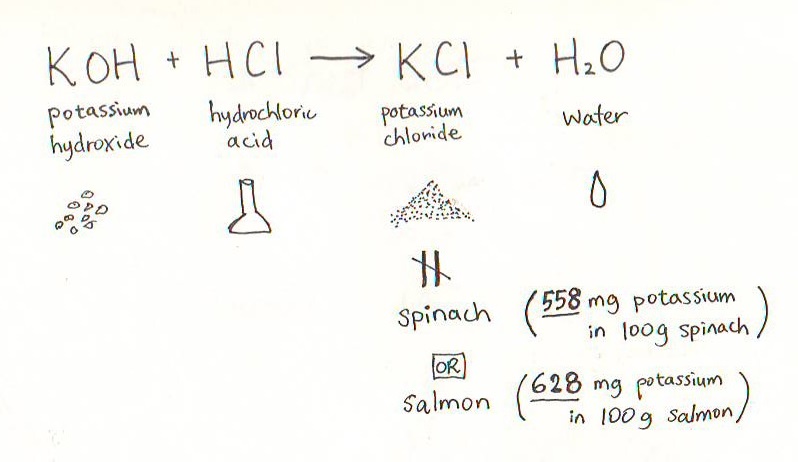 KOH + HCl → KCl + H₂O
potassium hydroxide
hydrochloric acid
potassium chloride
water
spinach (558 mg potassium
in 100g spinach)
OR
salmon (628 mg potassium
in 100g salmon)